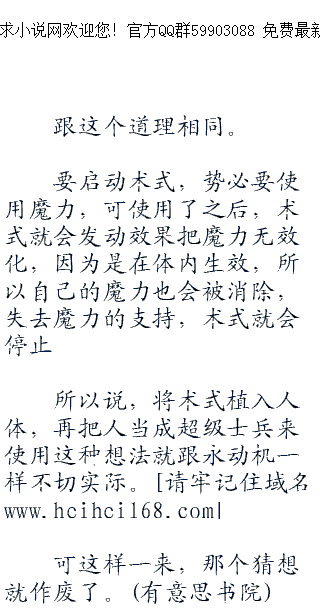 求小说网欢迎您! 官方QQ群59903088 免费最新
跟这个道理相同。
要启动术式，势必要使
用魔力，可使用了之后，术
式就会发动效果把魔力无效
化，因为是在体内生效，所
以自己的魔力也会被消除，
失去魔力的支持，术式就会
停止
所以说，将术式植入人
体，再把人当成超级士兵来
使用这种想法就跟永动机一
样不切实际。[请牢记住域名
www.hcihcil68.com|
可这样一来，那个猜想
就作废了。(有意思书院)